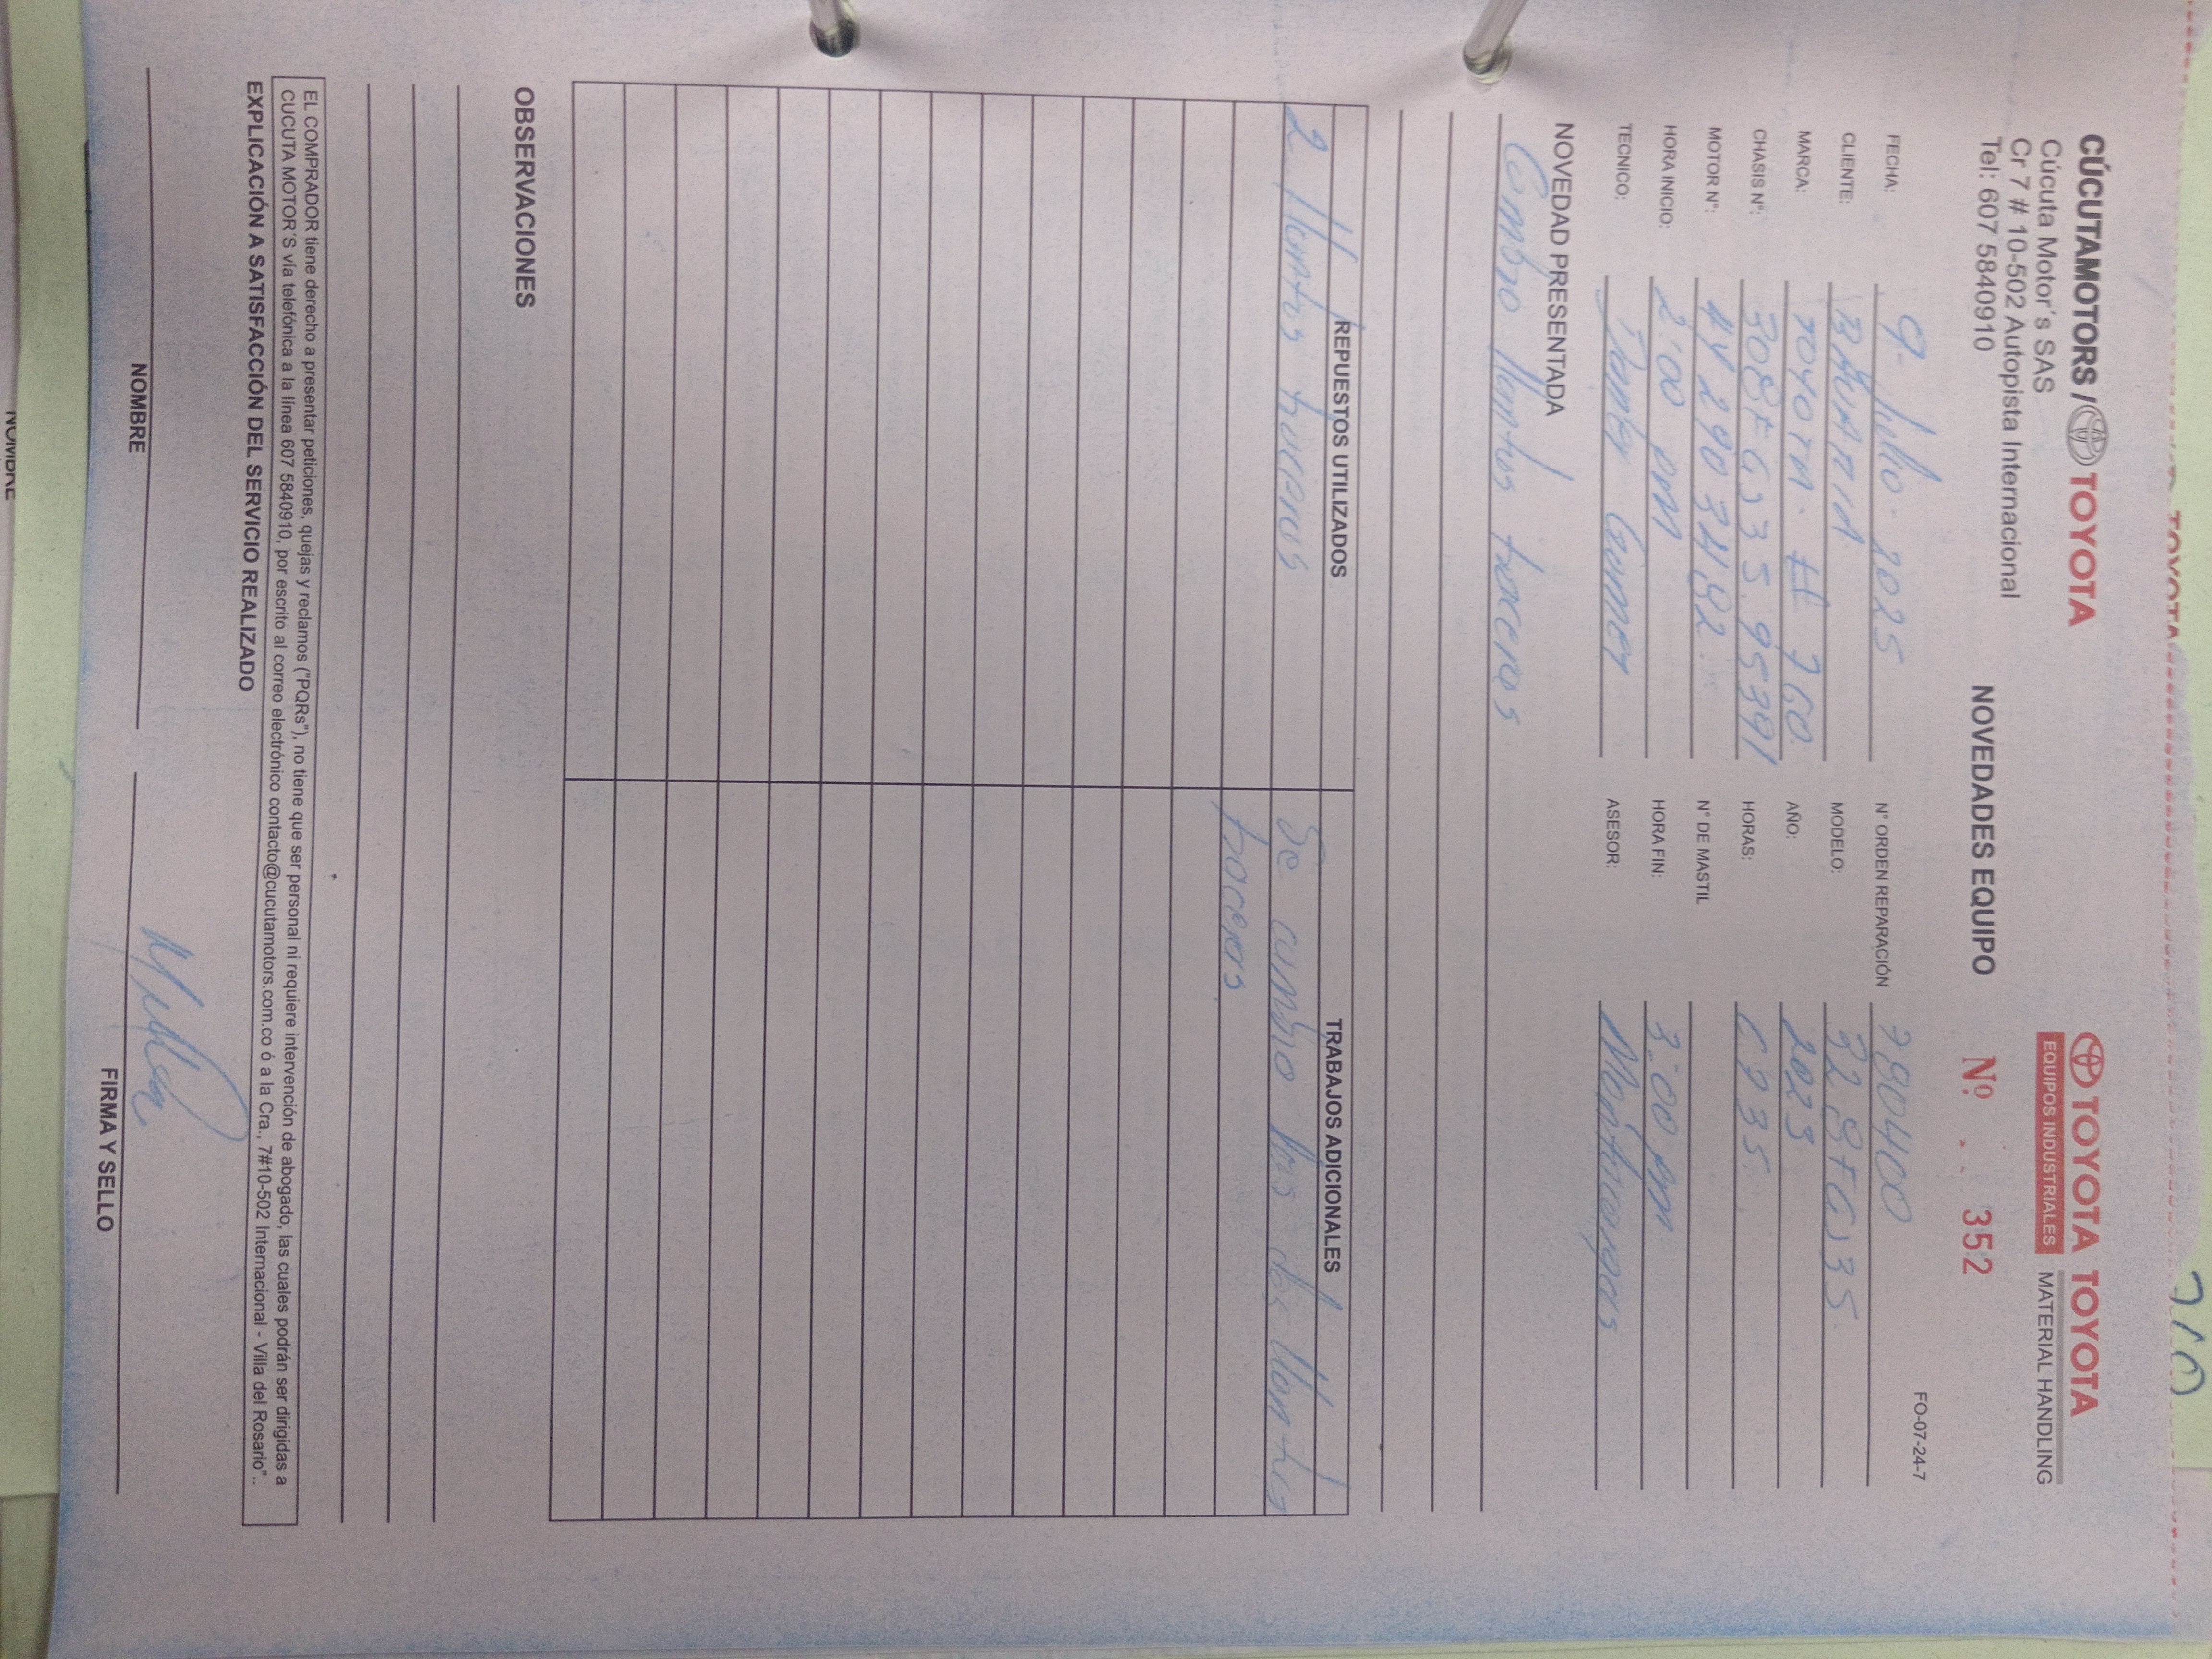 CÚCUTAMOTORS / TOYOTA
Cúcuta Motor´s SAS
Cr 7 # 10-502 Autopista Internacional
Tel: 607 5840910
TOYOTA TOYOTA
EQUIPOS INDUSTRIALES MATERIAL HANDLING
NOVEDADES EQUIPO
Nº 352
FO-07-24-7
FECHA: 9- Julio- 2025
N° ORDEN REPARACIÓN 780400
CLIENTE:
MODELO: 32-8FGJ35
MARCA: TOYOTA. # 760
AÑO: 2023
CHASIS N°: 308FGJ35.95391
HORAS: 6235.
MOTOR N°:
N° DE MASTIL
HORA INICIO: 2:00 pm
HORA FIN: 3:00 pm
TECNICO:
ASESOR:
NOVEDAD PRESENTADA
Cambio llantas traceras
REPUESTOS UTILIZADOS
TRABAJOS ADICIONALES
2 llantas traceras
Se cambio las dos llantas
traceras.
OBSERVACIONES
EL COMPRADOR tiene derecho a presentar peticiones, quejas y reclamos ("PQRs"), no tiene que ser personal ni requiere intervención de abogado, las cuales podrán ser dirigidas a
CUCUTA MOTOR´S vía telefónica a la línea 607 5840910, por escrito al correo electrónico contacto@cucutamotors.com.co ó a la Cra., 7#10-502 Internacional - Villa del Rosario"..
EXPLICACIÓN A SATISFACCIÓN DEL SERVICIO REALIZADO
NOMBRE
FIRMA Y SELLO
NOMBRE